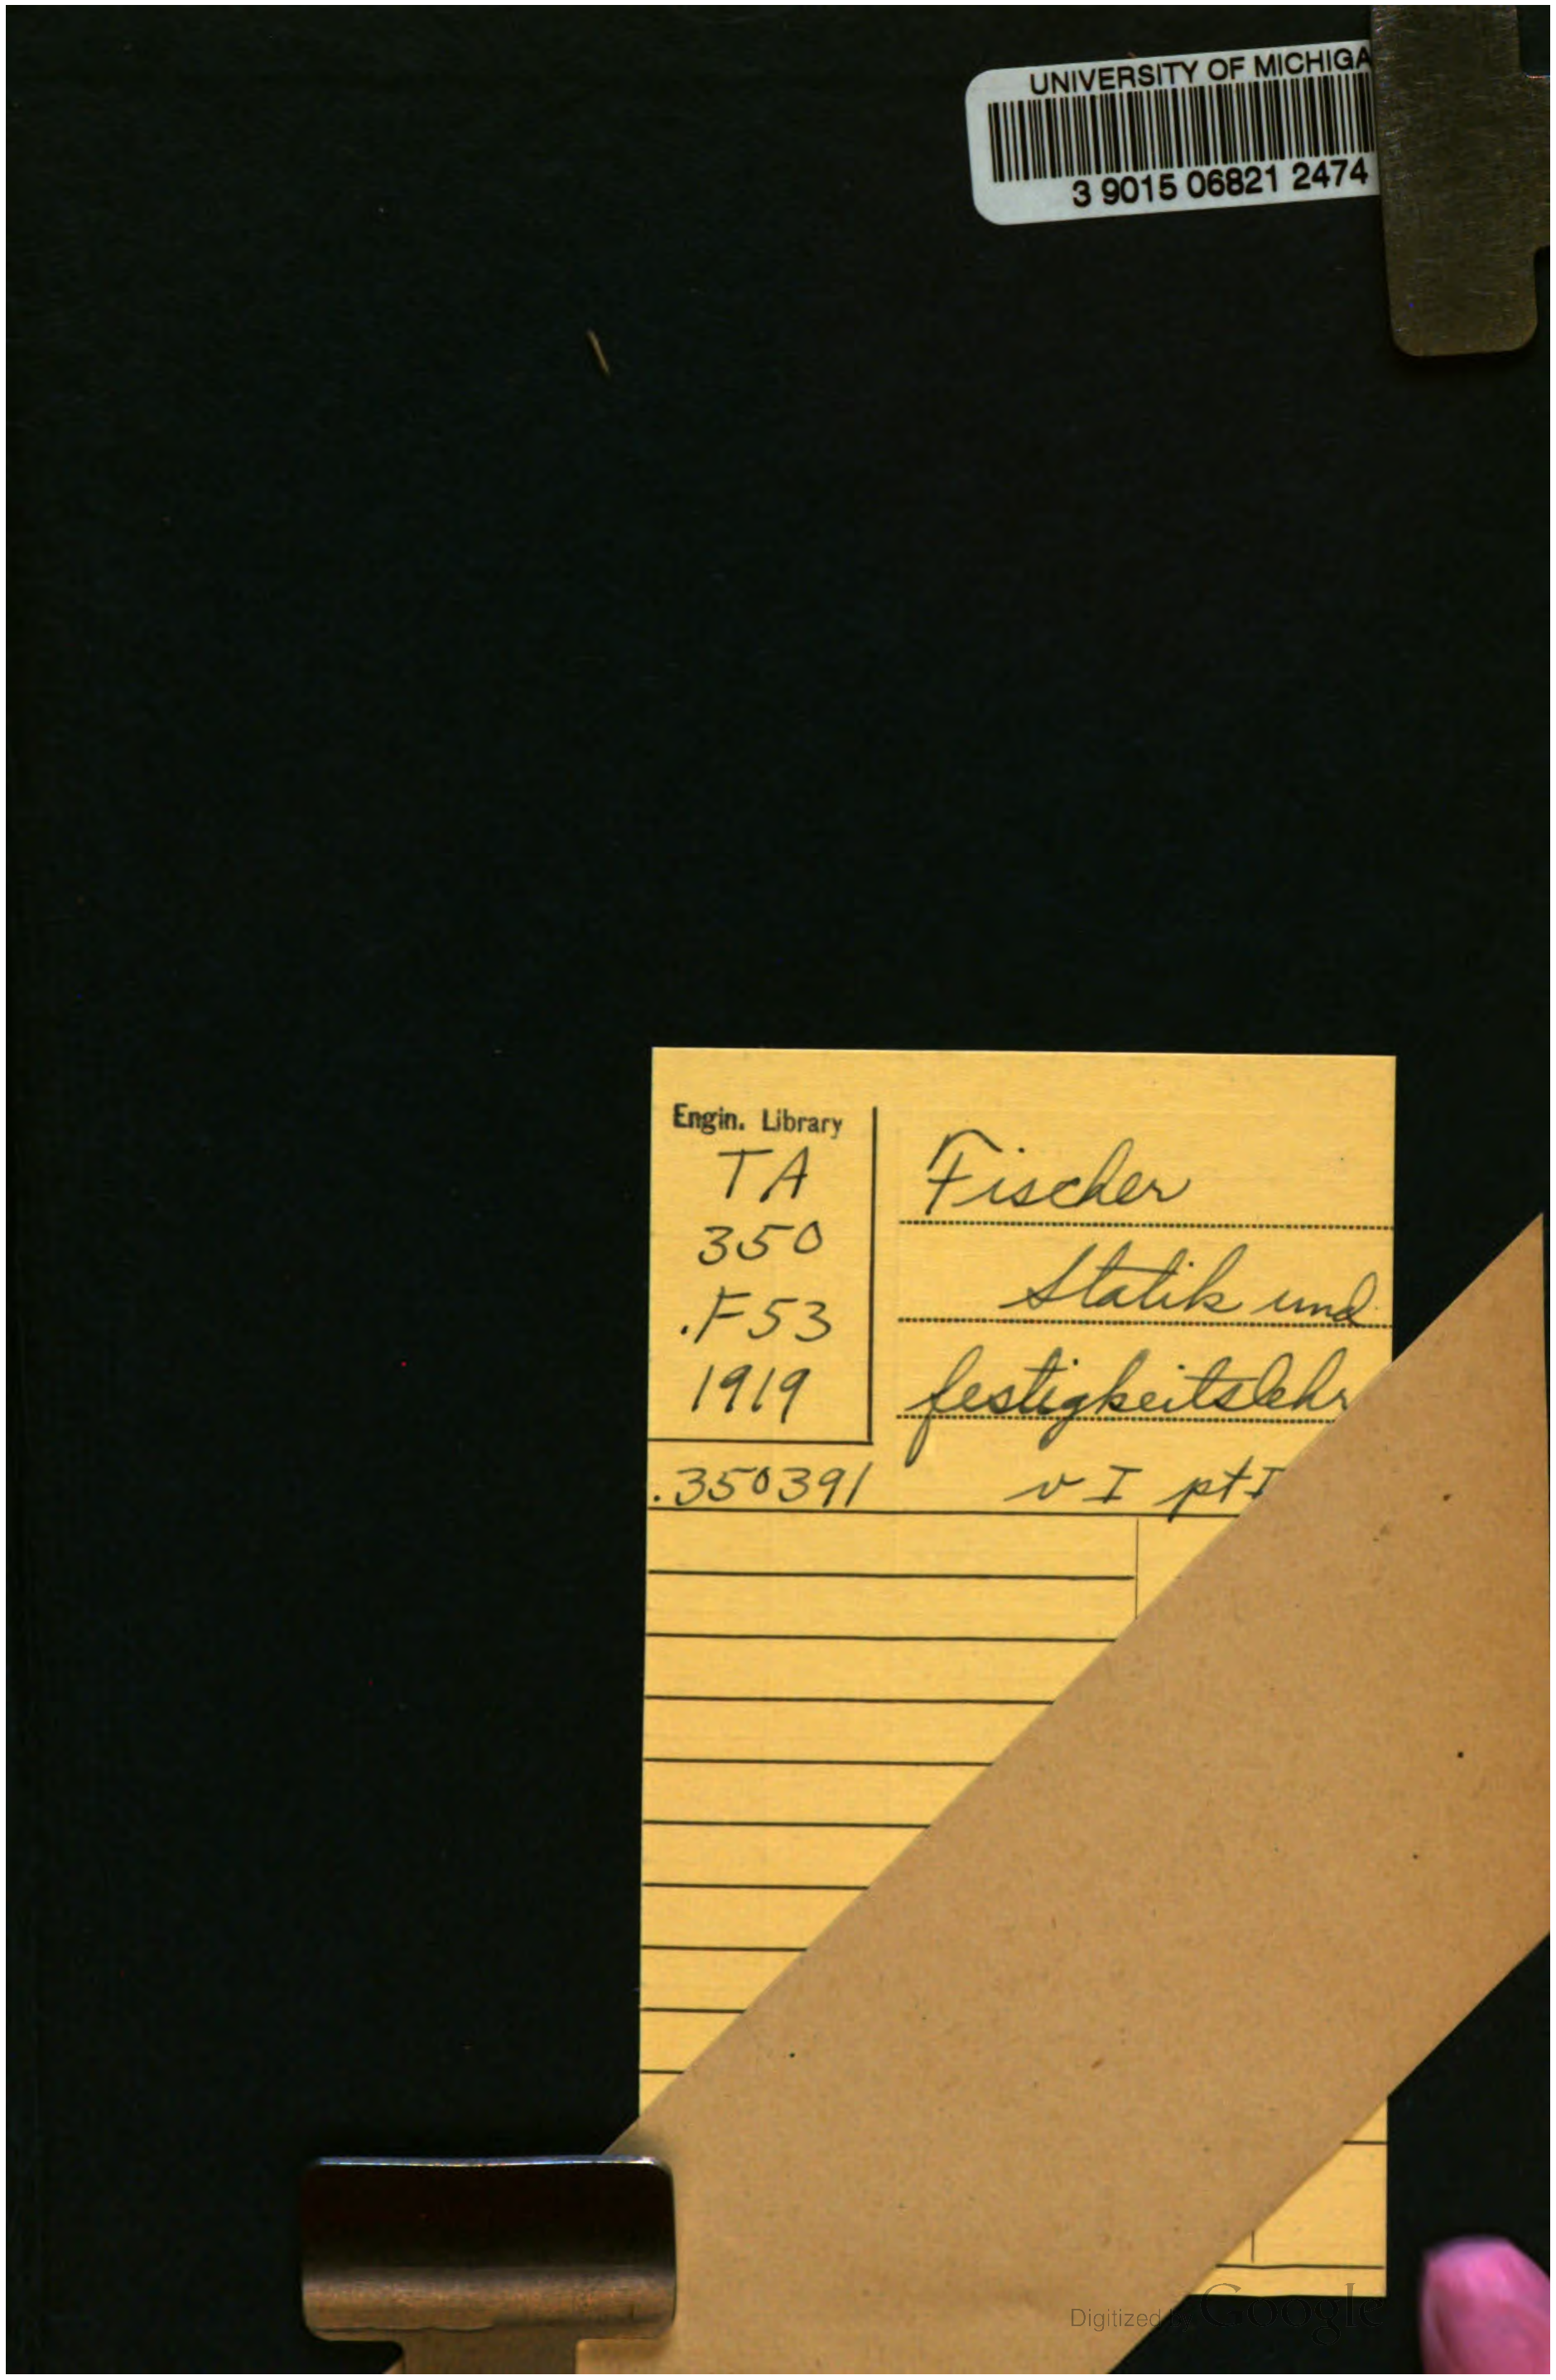 UNIVERSITY OF MICHIGA
3 9015 06821 2474
Engin. Library
TA
350
.F53
1919
Fischer
Statik und
festigkeitslehr
.350391
v I pt I
Digitized by Google